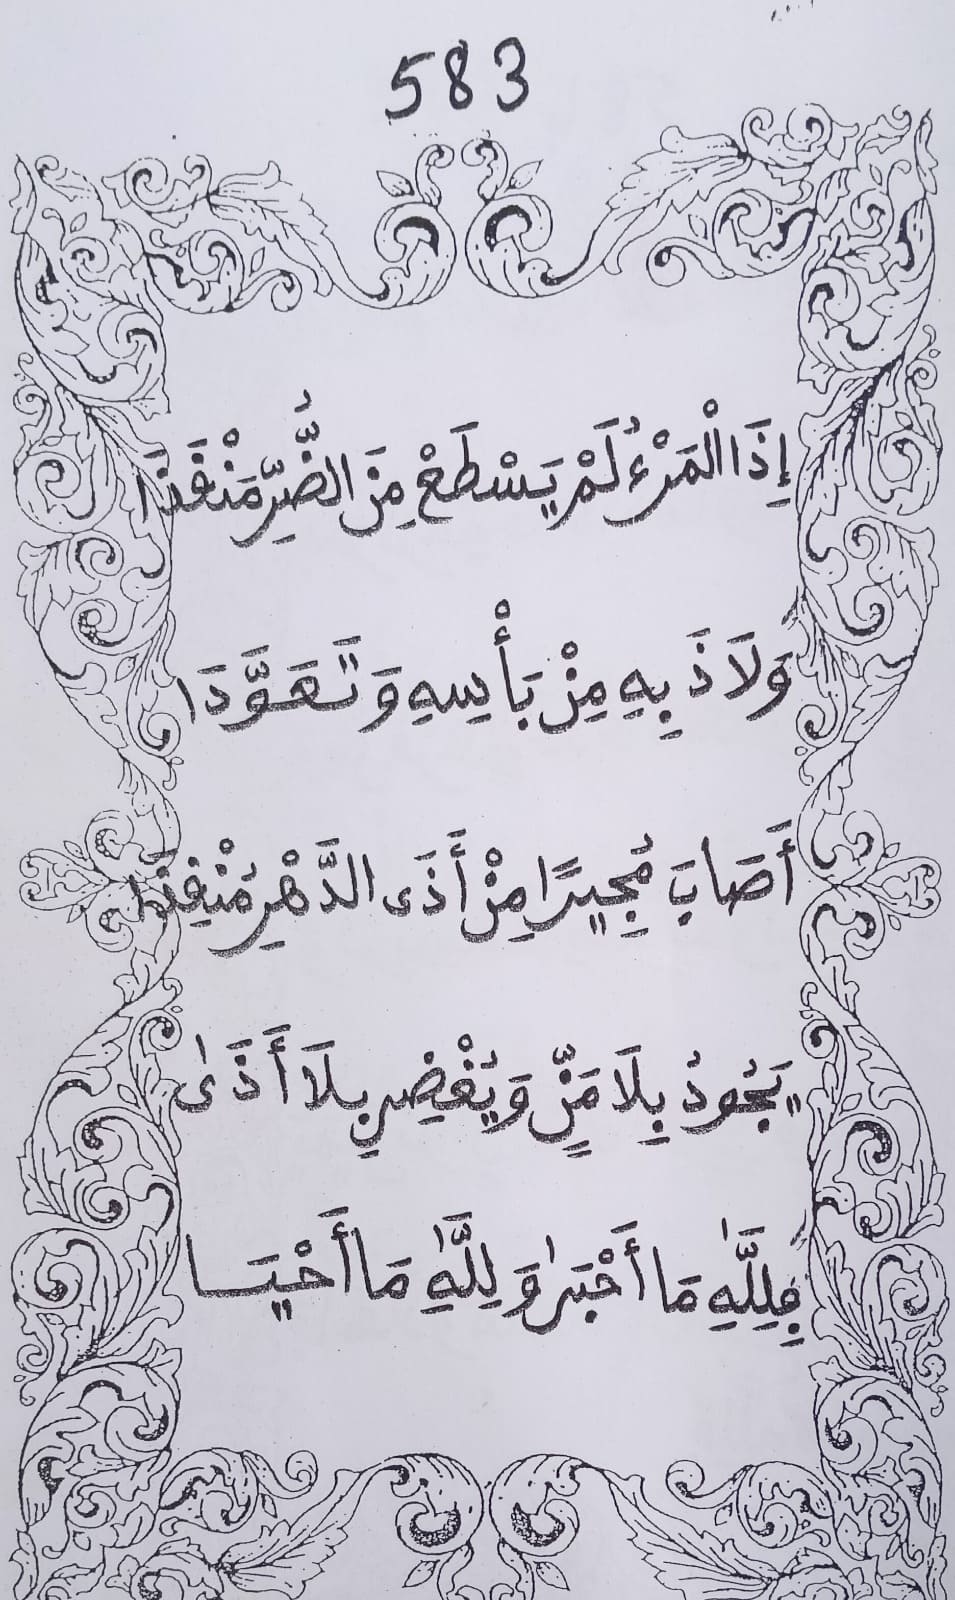 583
إِذَا الْمَرْءُ لَمْ يَسْطَعْ مِنَ الضُّرِّ مَنْفَذَا
وَلَاذَ بِهِ مِنْ بَأْسِهِ وَتَعَوَّذَا
أَصَابَ مُجِيرًا مِنْ أَذَى الدَّهْرِ مُنْقِذَا
يَجُودُ بِلَا مَنٍّ وَيُغْضِي بِلَا أَذَىٰ
فَلِلَّهِ مَا أَجْبَرَا وَلِلَّهِ مَا أَحْيَا